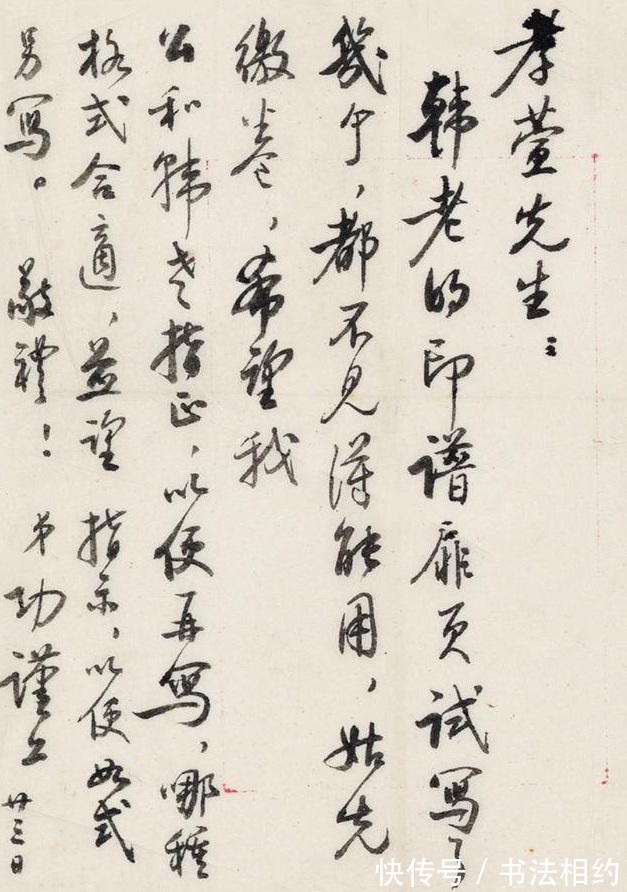 孝萱先生：
韩老的印譜扉页試寫了
幾个，都不見得能用，姑先
繳卷，希望我
公和韩老指正，以便再寫，哪種
格式合適，並望 指示，以便如式
另寫。 敬禮！ 弟功謹上 廿三日
快传号 / 书法相约